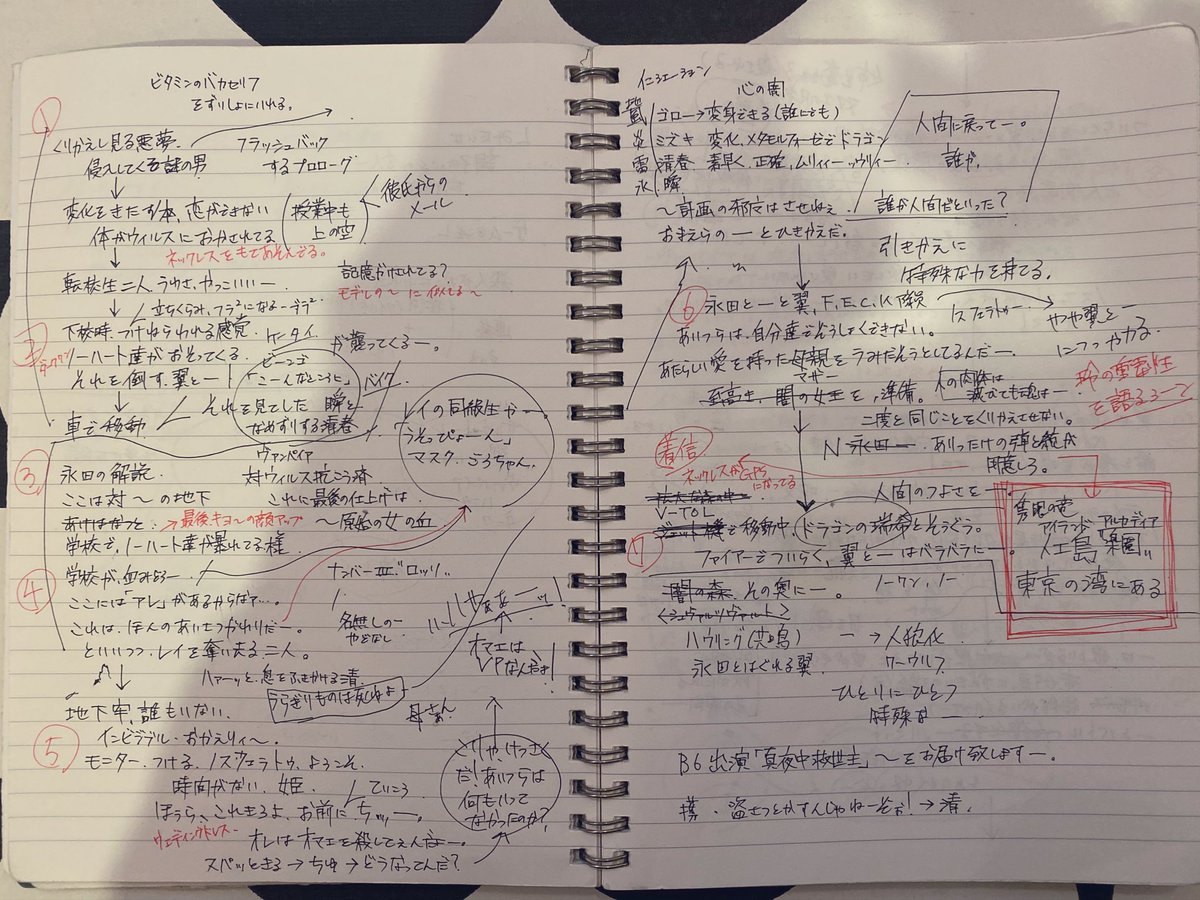 ビタミンのバカセリフ
をずいしょにいれる。
①
くりかえし見る悪夢。
フラッシュバック
侵入してくる謎の男
するプロローグ
変化をきたす体、恋ができない
体がウィルスにおかされてる
授業中も
上の空
彼氏からの
メール
ネックレスをもてあそんでる。
転校生二人 うわさ、やっこいいー
記憶がけされてる?
モデルの〜に似てる〜
立ちくらみ、
下校時、つけねらわれる感覚
ノーハート達がおそってくる。
が襲ってくるー。
それを倒す、翼とー
ビーンゴ
「こーんなところに」
バイク
車で移動
それを見てした
なめずりする清春
瞬と
ヴァンパイア
レイの同級生が
うそっぴょーん」
マスク、ごろちゃん。
③
永田の解説
対ウィルス抗こう済
ここは対〜の地下
これに最後の仕上げは
あけはなつと
→最後キョ〜の顔アップ
〜原宿の女の血
学校で、ノーハート達が暴れてる様
④
学校が、血みどろー
ナンバーIII ロッソ
ここには「アレ」があるからなァ…。
名無しの
これは、ほんのあいさつがわりだー。
といいつつ、レイを奪い去る二人。
いやぁぁーッ!
オマエは
VPなんだよ!
ハァーッと、息をふきかける清
うらぎりものは死ねよ
地下牢、誰もいない。
母さん
⑤
インビジブル・おかえりィ〜。
モニター、つける、ノスフェラトゥ、ようこそ
時間がない、姫。
ていこう
ほうら、これきろよ、お前に ちッー。
ウェディングドレス
オレはオマエを殺してえんだよー。
スパッときる→ちゅ→どうなってんだ?
くりゃ、けっさく
だ!あいつらは
何もいって
なかったのか?
心の闇
ゴロー→変身できる(誰にでも)
炎
ミズキ 変化、メタモルフォーゼでドラゴン
雷
清春 素早く、正確、
氷
瞬
〜計画の邪魔はさせねぇ
おまえらのーとひきかえだ。
人間に戻ってー。
誰が、
誰が人間だといった?
引きかえに
特殊な力を持てる。
⑥
永田とーと翼、F.E.C.K
あいつらは、自分達でそうしょくできない。
あたらしい愛を持った母親をうみだそうとしてるんだー
マザー
至高き、闇の女王を、準備。
の肉体は
滅びても魂はー
二度と同じことをくりかえさせない。
やや翼と
につっかかる
の重要性
を語るるーと
着信
N 永田ー ありったけの弾と銃が
用意しろ。
ネックレスがGPS
になってる
人間のつよさをー
V-TOL
⑦
ジェット機で移動中、ドラゴンの瑞希とそうぐう。
ファイアーでついらく、翼とーはバラバラにー。
闇の森 その奥にー。
ノーワン、ノー
<シュヴァルツヴァルト>
ハウリング(共鳴)
ー→人狼化
永田とはぐれる翼
ワーウルフ
ひとりにひとつ
特殊なー
アイランド アルカディア
人工島 "楽園"
東京の湾にある
B6 出演「真夜中救世主」〜をお届け致しますー
盗さつとかすんじゃねーぞォ!→清。